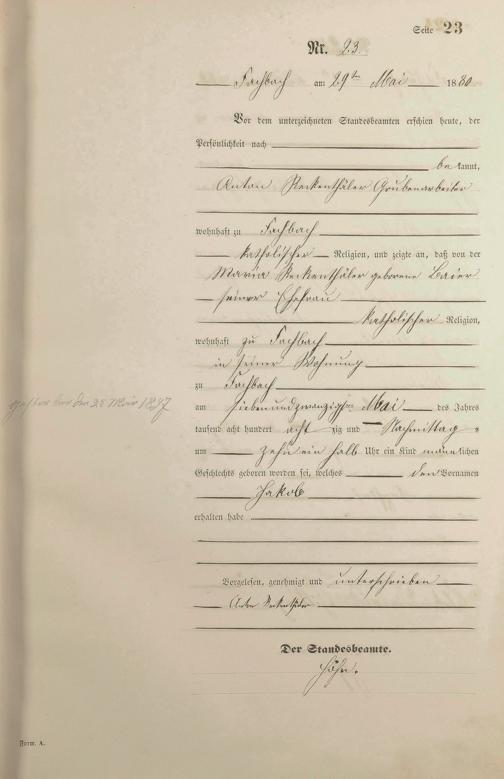 Seite 23
Nr. 23.
Fachbach am 29ten Mai 1880
Vor dem unterzeichneten Standesbeamten erschien heute, der
Persönlichkeit nach
be kannt,
Anton Reckenthäler Grubenarbeiter
wohnhaft zu Fachbach
katholischer Religion, und zeigte an, daß von der
Maria Reckenthäler geborene Baier
seiner Ehefrau
katholischer Religion,
wohnhaft zu Fachbach
in seiner Wohnung
zu Fachbach
gestorben den Mai 1897
am siebenundzwanzigten Mai des Jahres
tausend acht hundert acht zig und Nachmittag s
um zehn ein halb Uhr ein Kind männlichen
Geschlechts geboren worden sei, welches den Vornamen
Jakob
erhalten habe
Vorgelesen, genehmigt und unterschrieben
Anton Reckenthäler
Der Standesbeamte.
Höhn.
Form. A.